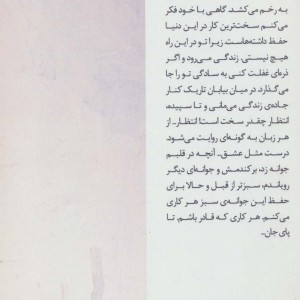 به رخم می‌کشد. گاهی با خود فکر
می‌کنم سخت‌ترین کار در این دنیا
حفظ داشته‌هاست. زیرا تو در این راه
هیچ نیستی. زندگی می‌رود و اگر
ذره‌ای غفلت کنی به سادگی تو را جا
می‌گذارد. در میان بیابان تاریک کنار
جاده‌ی زندگی می‌مانی و تا سپیده،
انتظار چقدر سخت است! انتظار... از
هر زبان به گونه‌ای روایت می‌شود.
درست مثل عشق... آنچه در قلبم
جوانه زد، برکندمش و جوانه‌ای دیگر
رویاندم، سبزتر از قبل و حالا برای
حفظ این جوانه‌ی سبز هر کاری
می‌کنم. هر کاری که قادر باشم. تا
پای جان...